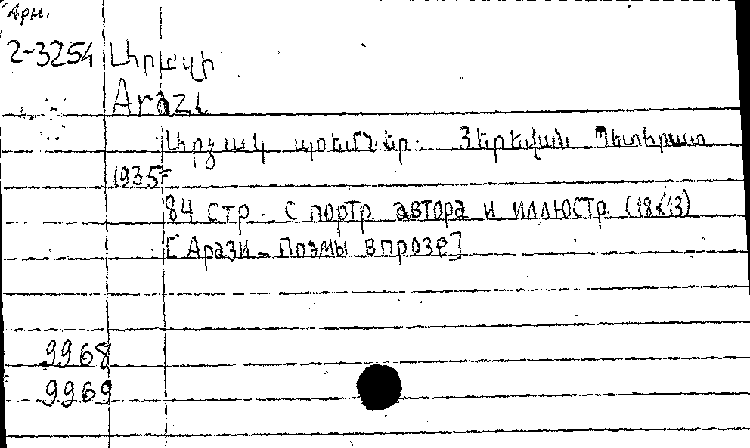 Арм.
2-3254 Արազի
Arazi
Արձակ պոեմներ. Յերեվան Պետհրատ
1935
84 стр. с портр автора и иллюстр (18x13)
[Арази - Поэмы в прозе]
9968
9969